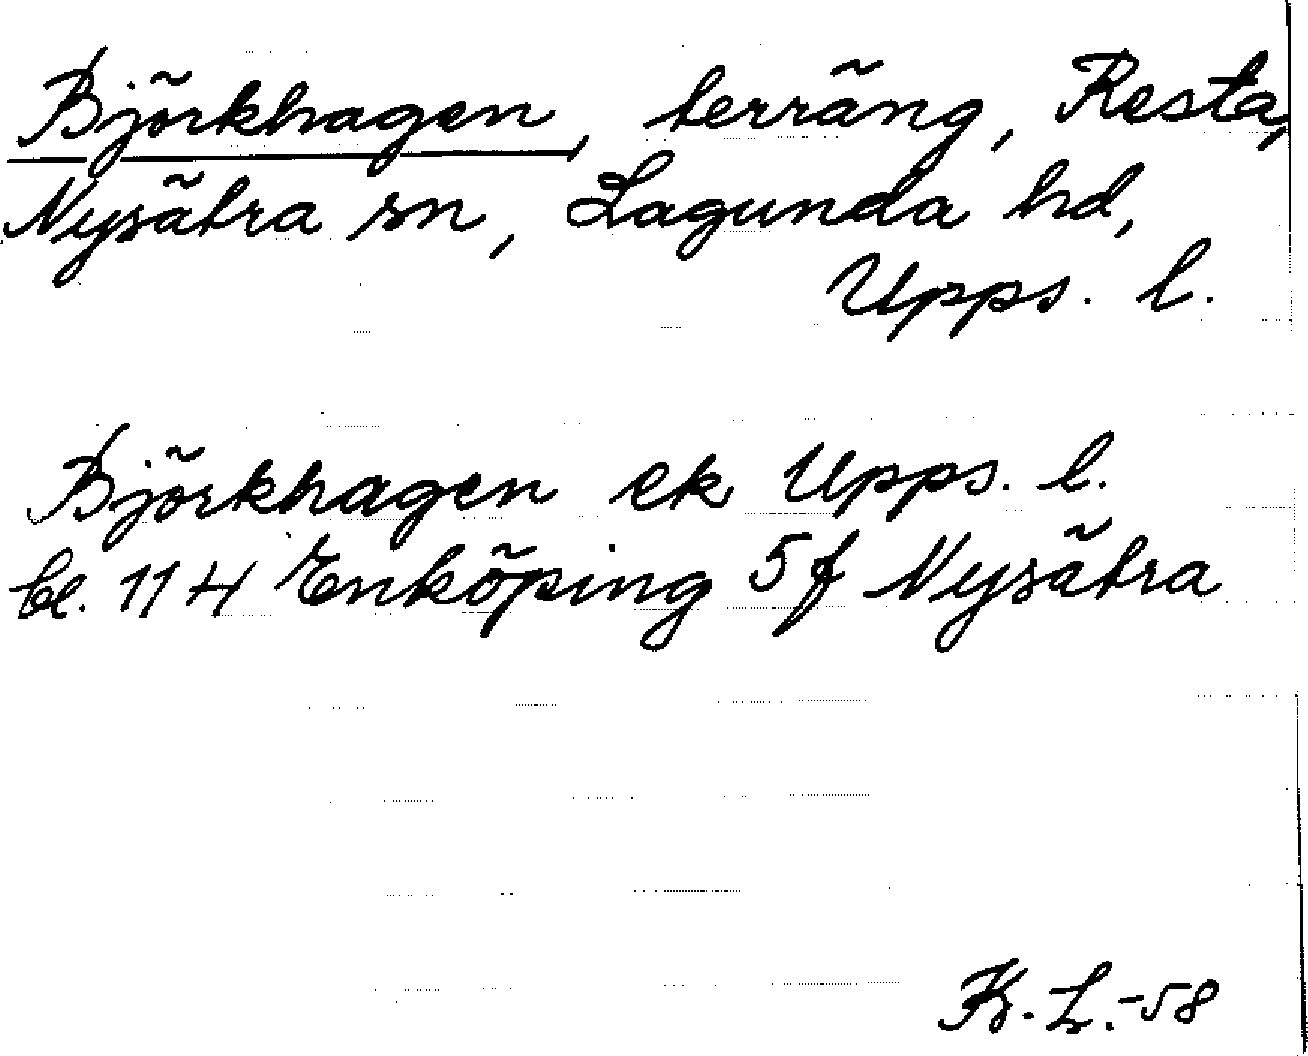 Björkhagen, terräng, Resta,
Nysätra sn, Lagunda hd,
Upps. l.
Björkhagen ek Upps. l.
bl. 11 H Enköping 5 f Nysätra
K. L. -58